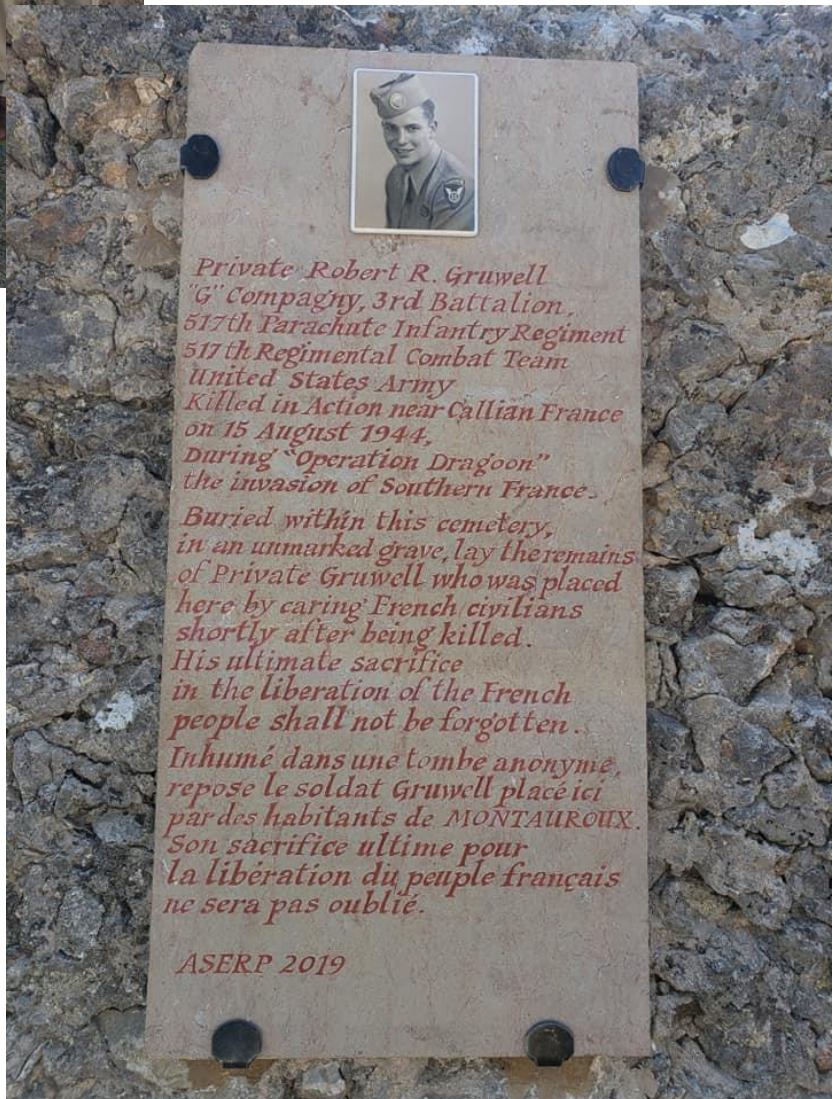 Private Robert R. Gruwell
"G" Compagny, 3rd Battalion,
517th Parachute Infantry Regiment
517th Regimental Combat Team
United States Army
Killed in Action near Callian France
on 15 August 1944,
During "Operation Dragoon"
the invasion of Southern France.
Buried within this cemetery,
in an unmarked grave, lay the remains
of Private Gruwell who was placed
here by caring French civilians
shortly after being killed.
His ultimate sacrifice
in the liberation of the French
people shall not be forgotten.
Inhumé dans une tombe anonyme,
repose le soldat Gruwell placé ici
par des habitants de MONTAUROUX.
Son sacrifice ultime pour
la libération du peuple français
ne sera pas oublié.
ASERP 2019